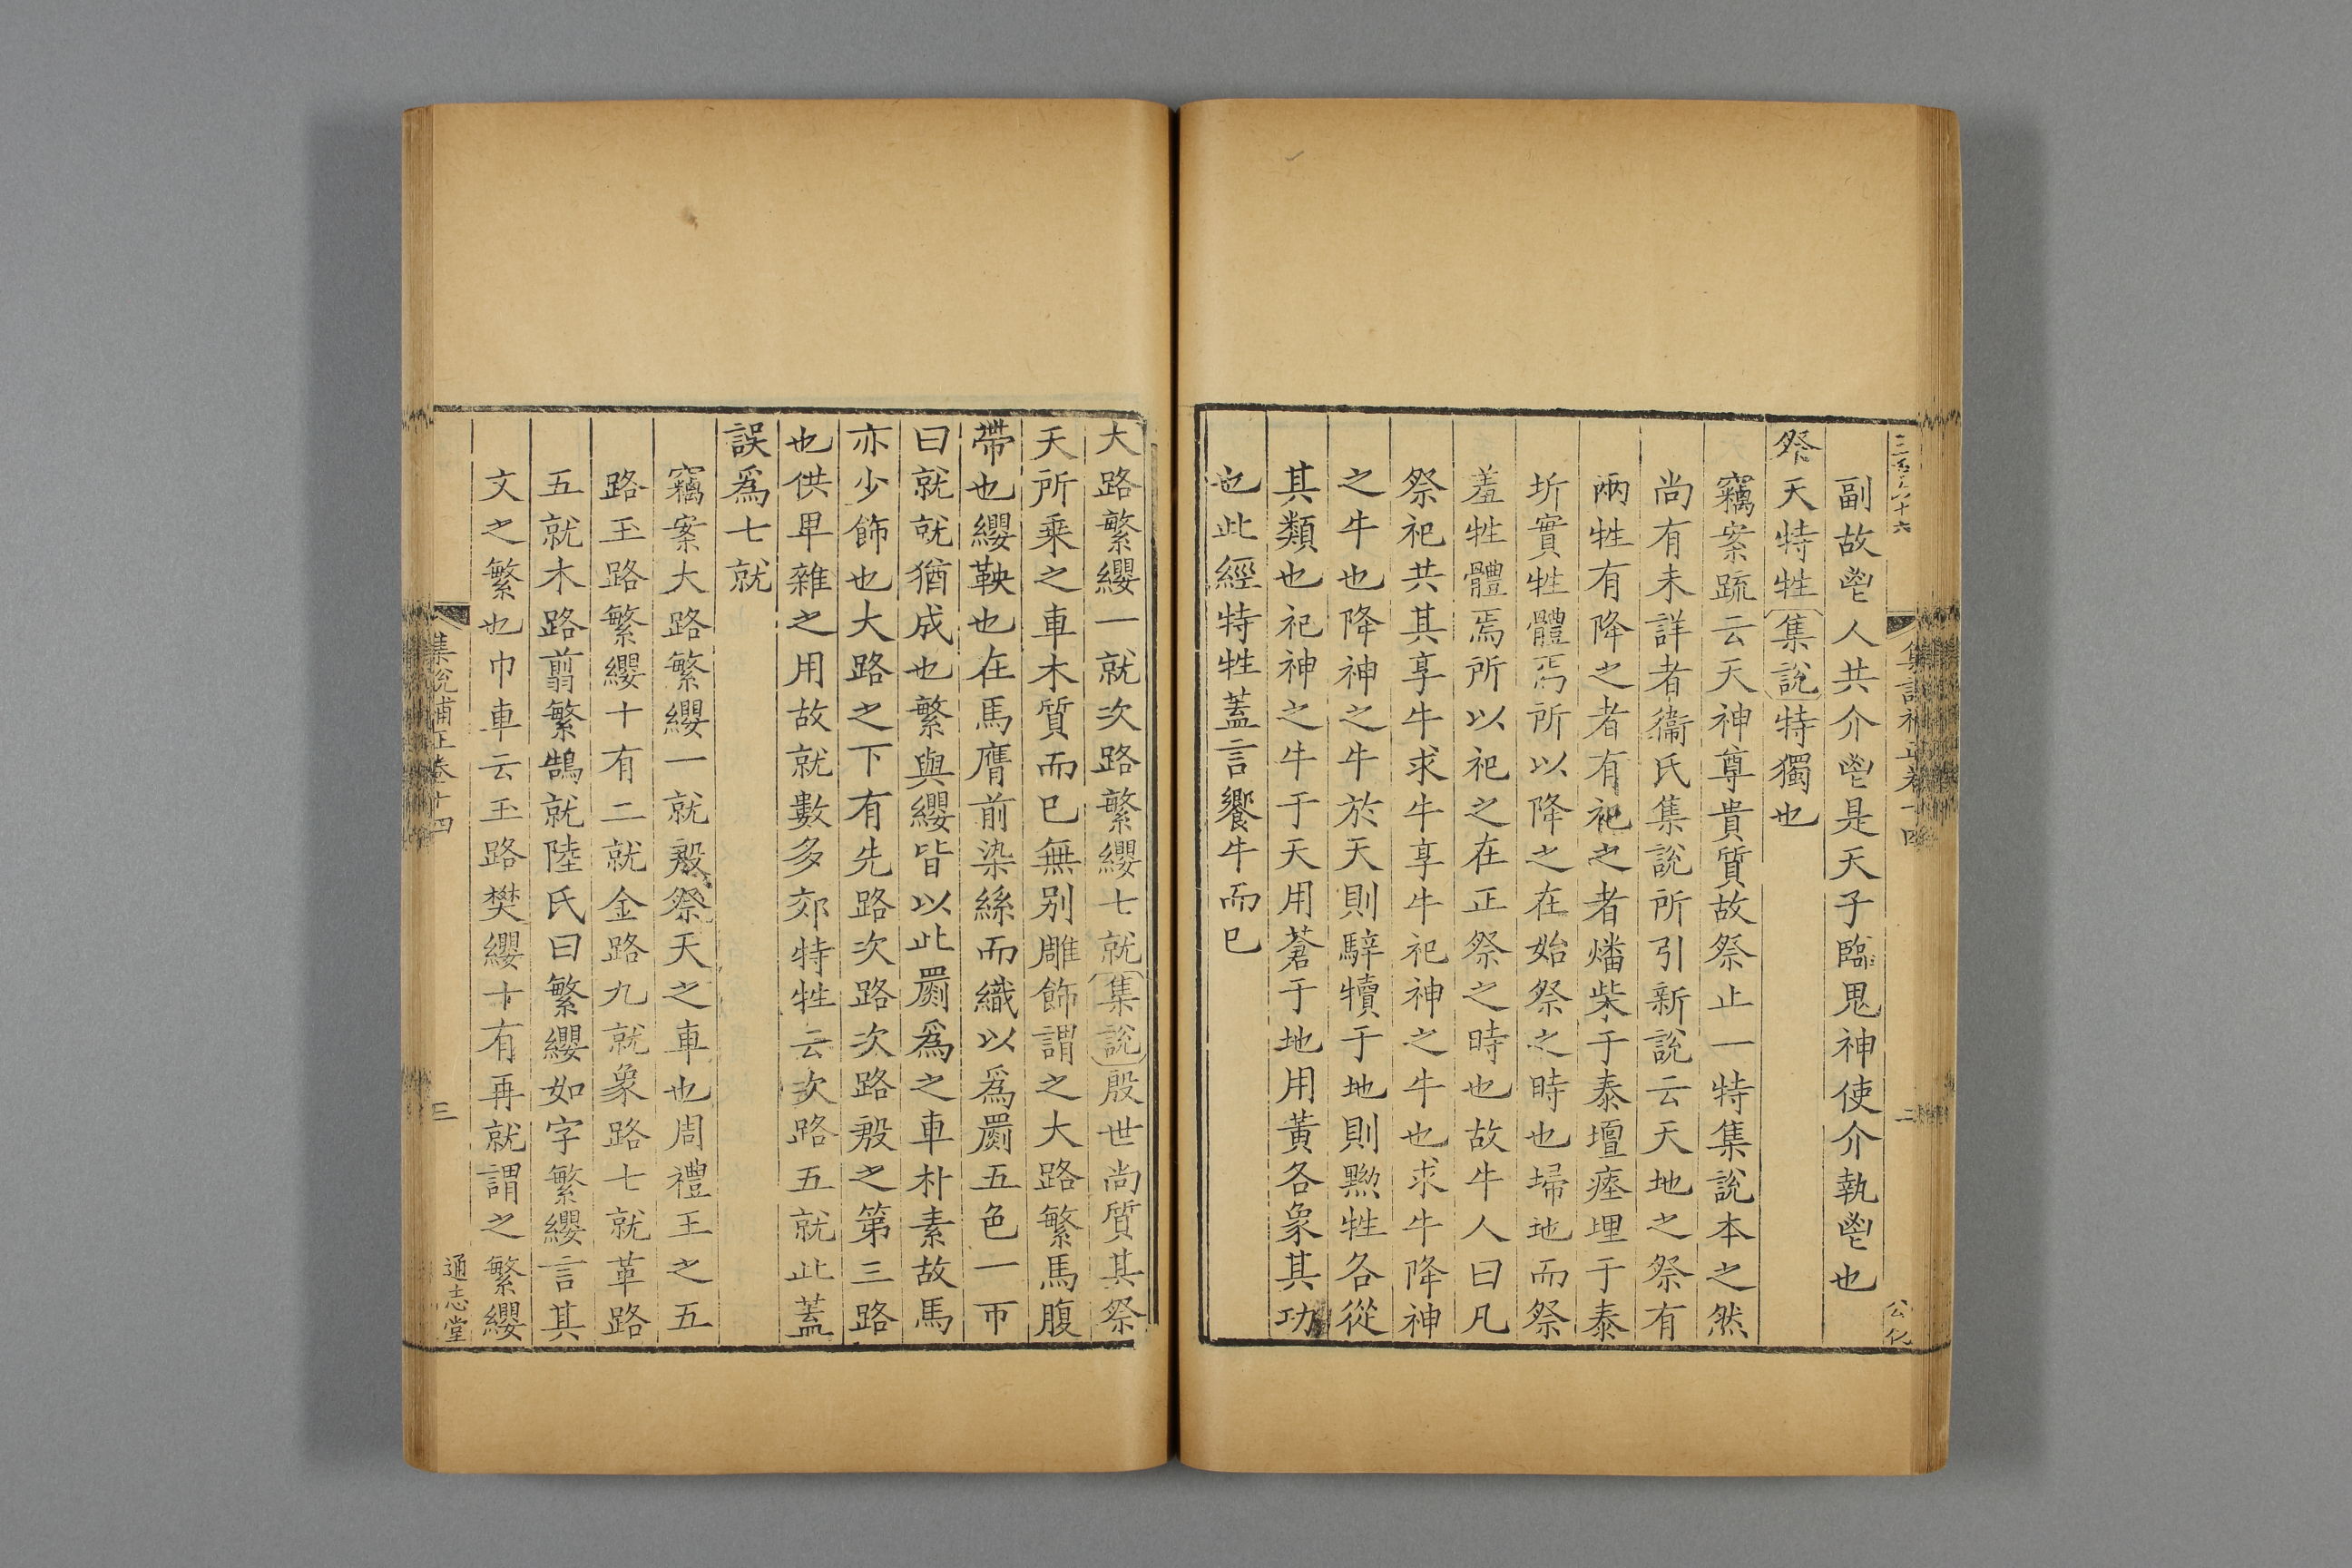 副故鬯人共介鬯是天子臨鬼神使介執鬯也
祭天特牲集說特獨也
竊案疏云天神尊貴質故祭止一特集說本之然
尚有未詳者衞氏集說所引新說云天地之祭有
兩牲有降之者有祀之者燔柴于泰壇瘞埋于泰
圻實牲體焉所以降之在始祭之時也埽地而祭
羞牲體焉所以祀之在正祭之時也故牛人曰凡
祭祀共其享牛求牛享牛祀神之牛也求牛降神
之牛也降神之牛於天則騂犢于地則黝牲各從
其類也祀神之牛于天用蒼于地用黃各象其功
也此經特牲蓋言饗牛而已
集說補正卷十四
二
公化
大路繁纓一就次路繁纓七就集說殷世尚質其祭
天所乘之車木質而已無别雕飾謂之大路繁馬腹
帶也纓鞅也在馬膺前染絲而織以爲罽五色一帀
曰就就猶成也繁與纓皆以此罽爲之車朴素故馬
亦少飾也大路之下有先路次路次路殷之第三路
也供卑雜之用故就數多郊特牲云次路五就此蓋
誤爲七就
竊案大路繁纓一就殷祭天之車也周禮王之五
路玉路繁纓十有二就金路九就象路七就革路
五就木路翦繁鵠就陸氏曰繁纓如字繁纓言其
文之繁也巾車云玉路樊纓十有再就謂之繁纓
集說補正卷十四
三
通志堂